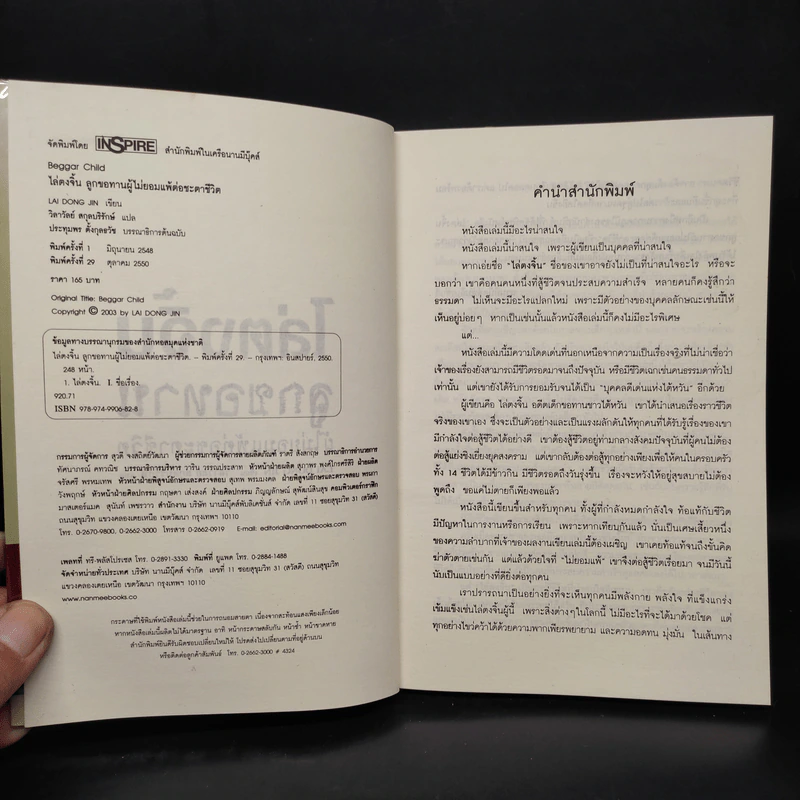 จัดพิมพ์โดย INSPIRE สำนักพิมพ์ในเครือนานมีบุ๊คส์
Beggar Child
ไล่ตงจิ้น ลูกขอทานผู้ไม่ยอมแพ้ต่อชะตาชีวิต
LAI DONG JIN เขียน
วิลาวัลย์ สกุลบริรักษ์ แปล
ประทุมพร ตั้งกุลธวัช บรรณาธิการต้นฉบับ
พิมพ์ครั้งที่ 1 มิถุนายน 2548
พิมพ์ครั้งที่ 29 ตุลาคม 2550
ราคา 165 บาท
Original Title: Beggar Child
Copyright © 2003 by LAI DONG JIN
ข้อมูลทางบรรณานุกรมของสำนักหอสมุดแห่งชาติ
ไล่ตงจิ้น ลูกขอทานผู้ไม่ยอมแพ้ต่อชะตาชีวิต. – พิมพ์ครั้งที่ 29. – กรุงเทพฯ: อินสปายร์. 2550.
248 หน้า.
1. ไล่ตงจิ้น. I. ชื่อเรื่อง.
920.71
ISBN 978-974-9906-82-8
กรรมการผู้จัดการ สุวดี จงสถิตย์วัฒนา ผู้ช่วยกรรมการผู้จัดการสายผลิตภัณฑ์ ราตรี สังสกฤษ บรรณาธิการอำนวยการ
ทัศนาภรณ์ คทวณิช บรรณาธิการบริหาร วาริน วรรณประสาท หัวหน้าฝ่ายผลิต สุภาพร พงศ์ไกรศรีสิริ ฝ่ายผลิต
จรัสศรี พรหมเทพ หัวหน้าฝ่ายพิสูจน์อักษรและตรวจสอบ สุเทพ พรมมงคล ฝ่ายพิสูจน์อักษรและตรวจสอบ พรนภา
วังพฤกษ์ หัวหน้าฝ่ายศิลปกรรม กฤษดา เส่งสงค์ ฝ่ายศิลปกรรม ภิญญลักษณ์ สุพัฒน์สินสุข คอมพิวเตอร์กราฟิก
มาสเตอร์แมค สุนันท์ เพชรวาว สำนักงาน บริษัท นานมีบุ๊คส์พับลิเคชั่นส์ จำกัด เลขที่ 11 ซอยสุขุมวิท 31 (สวัสดี)
ถนนสุขุมวิท แขวงคลองเตยเหนือ เขตวัฒนา กรุงเทพฯ 10110
โทร. 0-2670-9800, 0-2662-3000 โทรสาร 0-2662-0919 E-mail: editorial@nanmeebooks.com
เพลทที่ ทรี-พลัสโปรเซส โทร. 0-2891-3330 พิมพ์ที่ ยูแพค โทร. 0-2884-1488
จัดจำหน่ายทั่วประเทศ บริษัท นานมีบุ๊คส์ จำกัด เลขที่ 11 ซอยสุขุมวิท 31 (สวัสดี) ถนนสุขุมวิท
แขวงคลองเตยเหนือ เขตวัฒนา กรุงเทพฯ 10110
www.nanmeebooks.co
กระดาษที่ใช้พิมพ์หนังสือเล่มนี้ช่วยในการถนอมสายตา เนื่องจากสะท้อนแสงเพียงเล็กน้อย
หากหนังสือเล่มนี้ผลิตไม่ได้มาตรฐาน อาทิ หน้ากระดาษสลับกัน หน้าซ้ำ หน้าขาดหาย
สำนักพิมพ์ยินดีรับผิดชอบเปลี่ยนใหม่ให้ โปรดส่งไปเปลี่ยนตามที่อยู่ด้านบน
หรือติดต่อลูกค้าสัมพันธ์ โทร. 0-2662-3000 # 4324
คำนำสำนักพิมพ์
หนังสือเล่มนี้มีอะไรน่าสนใจ
หนังสือเล่มนี้น่าสนใจ เพราะผู้เขียนเป็นบุคคลที่น่าสนใจ
หากเอ่ยชื่อ "ไล่ตงจิ้น" ชื่อของเขาอาจยังไม่เป็นที่น่าสนใจอะไร หรือจะ
บอกว่า เขาคือคนคนหนึ่งที่สู้ชีวิตจนประสบความสำเร็จ หลายคนก็คงรู้สึกว่า
ธรรมดา ไม่เห็นจะมีอะไรแปลกใหม่ เพราะมีตัวอย่างของบุคคลลักษณะเช่นนี้ให้
เห็นอยู่บ่อยๆ หากเป็นเช่นนั้นแล้วหนังสือเล่มนี้ก็คงไม่มีอะไรพิเศษ
แต่...
หนังสือเล่มนี้มีความโดดเด่นที่นอกเหนือจากความเป็นเรื่องจริงที่ไม่น่าเชื่อว่า
เจ้าของเรื่องยังสามารถมีชีวิตรอดมาจนถึงปัจจุบัน หรือมีชีวิตเฉกเช่นคนธรรมดาทั่วไป
เท่านั้น แต่เขายังได้รับการยอมรับจนได้เป็น "บุคคลดีเด่นแห่งไต้หวัน" อีกด้วย
ผู้เขียนคือ ไล่ตงจิ้น อดีตเด็กขอทานชาวไต้หวัน เขาได้นำเสนอเรื่องราวชีวิต
จริงของเขาเอง ซึ่งจะเป็นตัวอย่างและเป็นแรงผลักดันให้ทุกคนที่ได้รับรู้เรื่องของเขา
มีกำลังใจต่อสู้ชีวิตได้อย่างดี เขาต้องสู้ชีวิตอยู่ท่ามกลางสังคมปัจจุบันที่ผู้คนไม่ต้อง
ต่อสู้แย่งชิงเยี่ยงยุคสงคราม แต่เขากลับต้องต่อสู้ทุกอย่างเพียงเพื่อให้คนในครอบครัว
ทั้ง 14 ชีวิตได้มีข้าวกิน มีชีวิตรอดถึงวันรุ่งขึ้น เรื่องจะหวังให้อยู่สุขสบายไม่ต้อง
พูดถึง ขอแค่ไม่ตายก็เพียงพอแล้ว
หนังสือนี้เขียนขึ้นสำหรับทุกคน ทั้งผู้ที่กำลังหมดกำลังใจ ท้อแท้กับชีวิต
มีปัญหาในการงานหรือการเรียน เพราะหากเทียบกันแล้ว นั่นเป็นเศษเสี้ยวหนึ่ง
ของความลำบากที่เจ้าของผลงานเขียนเล่มนี้ต้องเผชิญ เขาเคยท้อแท้จนถึงขั้นคิด
ฆ่าตัวตายเช่นกัน แต่แล้วด้วยใจที่ "ไม่ยอมแพ้" เขาจึงต่อสู้ชีวิตเรื่อยมา จนมีวันนี้
นับเป็นแบบอย่างที่ดียิ่งต่อทุกคน
เราปรารถนาเป็นอย่างยิ่งที่จะเห็นทุกคนมีพลังกาย พลังใจ ที่แข็งแกร่ง
เข้มแข็งเช่นไล่ตงจิ้นผู้นี้ เพราะสิ่งต่างๆในโลกนี้ ไม่มีอะไรที่จะได้มาด้วยโชค แต่
ทุกอย่างไขว่คว้าได้ด้วยความพากเพียรพยายาม และความอดทน มุ่งมั่น ในเส้นทาง